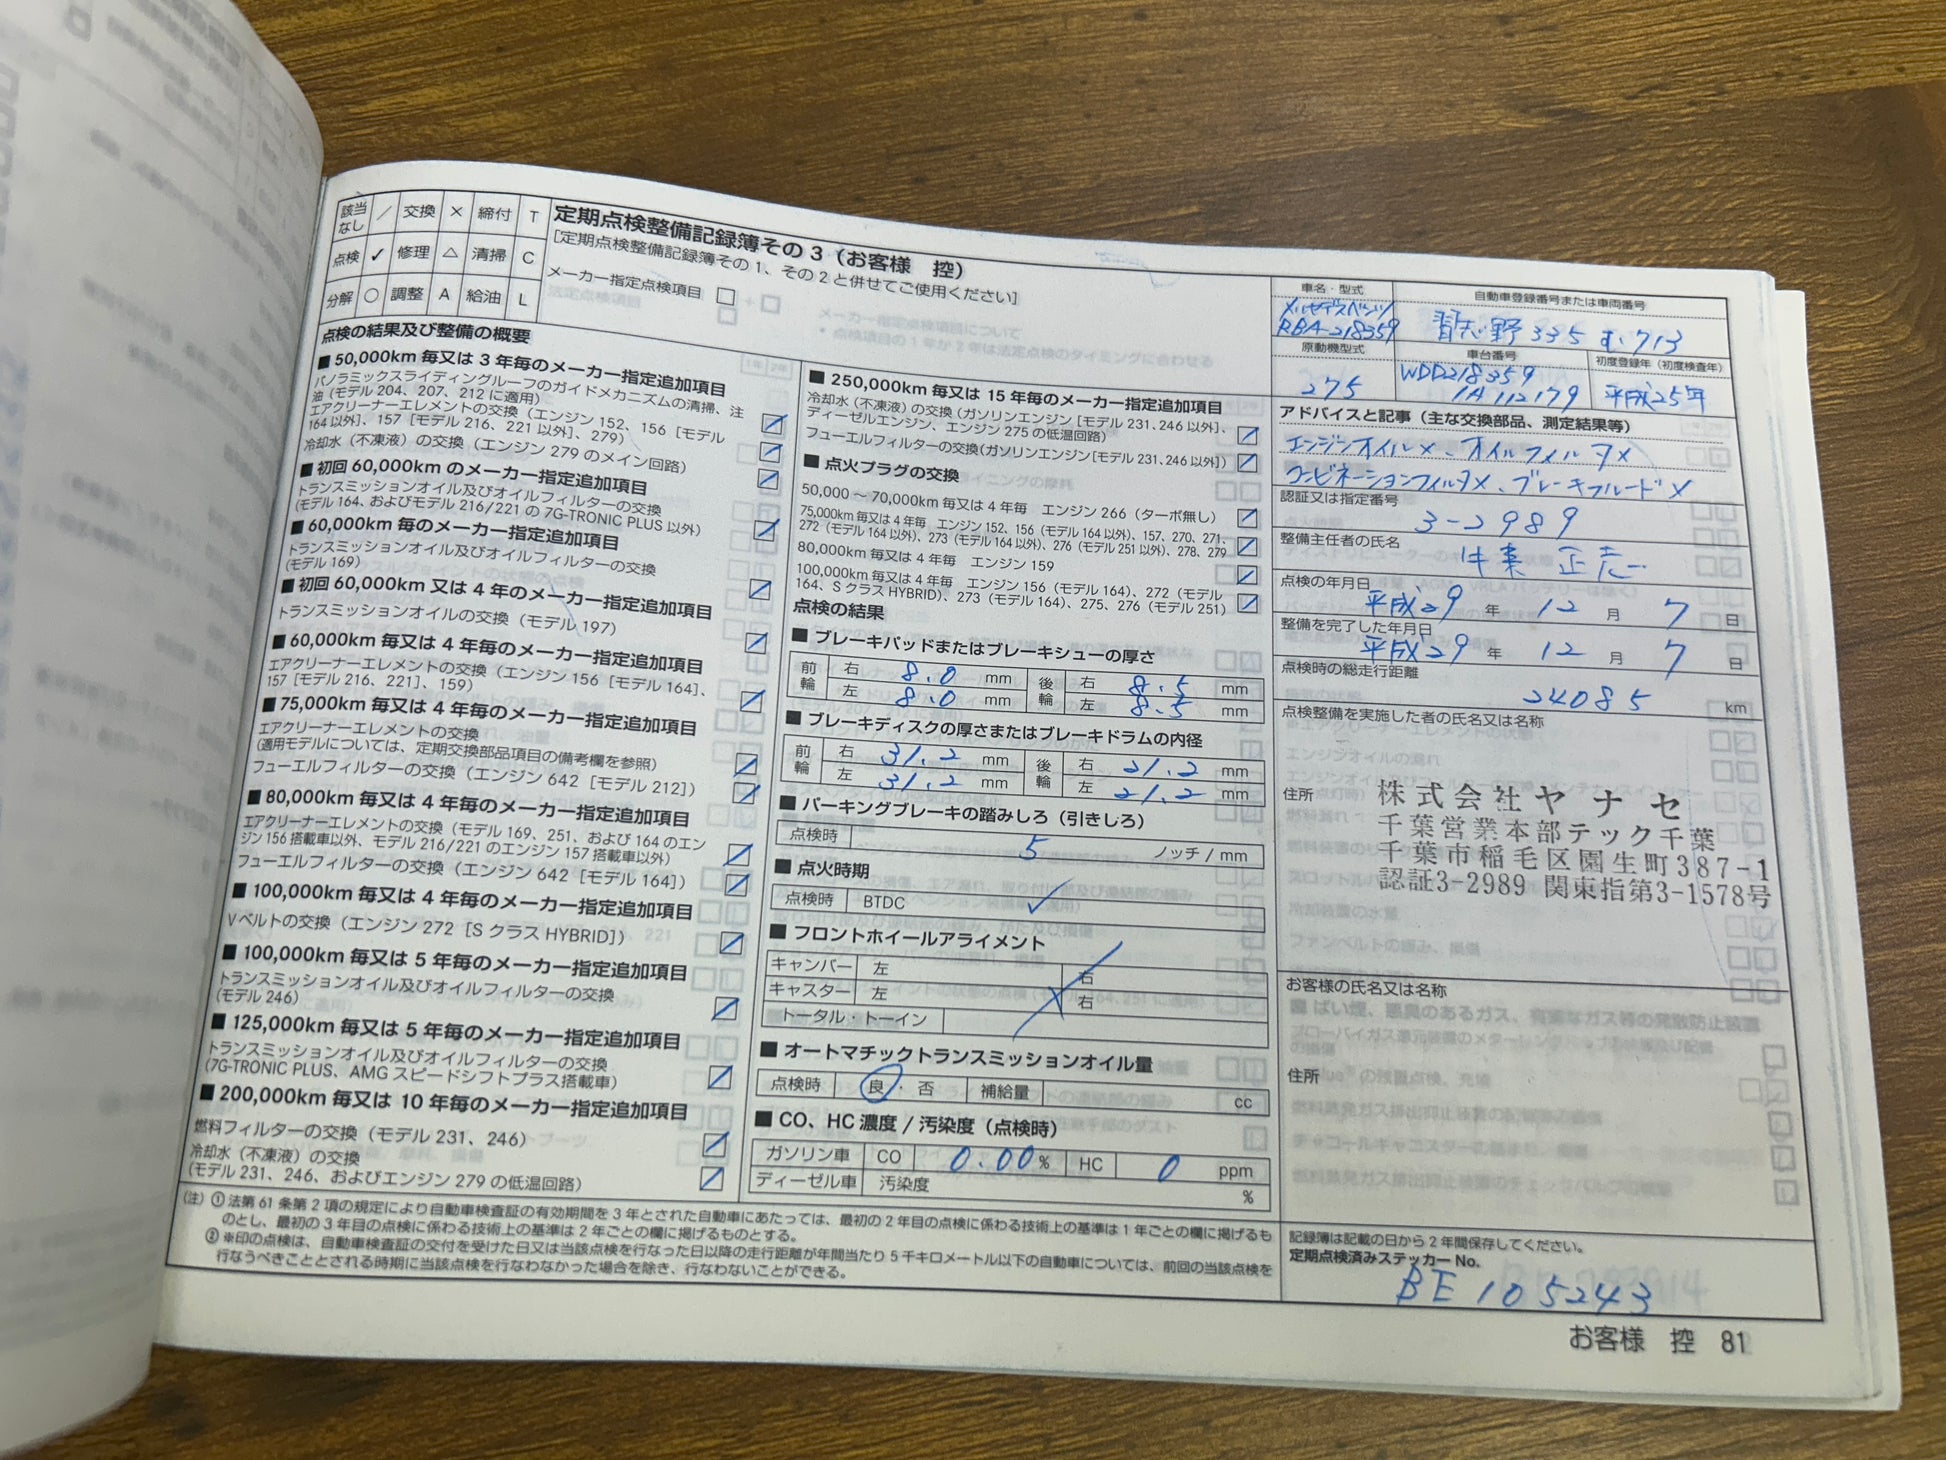 該当なし ／ 交換 × 締付 T
点検 ✓ 修理 △ 清掃 C
分解 ○ 調整 A 給油 L
定期点検整備記録簿その3（お客様 控）
［定期点検整備記録簿その1、その2と併せてご使用ください］
メーカー指定点検項目 □
点検の結果及び整備の概要
■ 50,000km 毎又は 3 年毎のメーカー指定追加項目
パノラミックスライディングルーフのガイドメカニズムの清掃、注
油（モデル 204、207、212 に適用）
エアクリーナーエレメントの交換（エンジン 152、156［モデル
164以外］、157［モデル 216、221以外］、279）
冷却水（不凍液）の交換（エンジン 279 のメイン回路）
■ 初回 60,000km のメーカー指定追加項目
トランスミッションオイル及びオイルフィルターの交換
（モデル 164、およびモデル 216/221 の 7G-TRONIC PLUS 以外）
■ 60,000km 毎のメーカー指定追加項目
トランスミッションオイル及びオイルフィルターの交換
（モデル 169）
■ 初回 60,000km 又は 4 年毎のメーカー指定追加項目
トランスミッションオイルの交換（モデル 197）
■ 60,000km 毎又は 4 年毎のメーカー指定追加項目
エアクリーナーエレメントの交換（エンジン 156［モデル 164］、
157［モデル 216、221］、159）
■ 75,000km 毎又は 4 年毎のメーカー指定追加項目
エアクリーナーエレメントの交換
（適用モデルについては、定期交換部品項目の備考欄を参照）
フューエルフィルターの交換（エンジン 642［モデル 212］）
■ 80,000km 毎又は 4 年毎のメーカー指定追加項目
エアクリーナーエレメントの交換（モデル 169、251、および 164 のエン
ジン 156 搭載車以外、モデル 216/221 のエンジン 157 搭載車以外）
フューエルフィルターの交換（エンジン 642［モデル 164］）
■ 100,000km 毎又は 4 年毎のメーカー指定追加項目
Vベルトの交換（エンジン 272［S クラス HYBRID］）
■ 100,000km 毎又は 5 年毎のメーカー指定追加項目
トランスミッションオイル及びオイルフィルターの交換
（モデル 246）
■ 125,000km 毎又は 5 年毎のメーカー指定追加項目
トランスミッションオイル及びオイルフィルターの交換
（7G-TRONIC PLUS、AMG スピードシフトプラス搭載車）
■ 200,000km 毎又は 10 年毎のメーカー指定追加項目
燃料フィルターの交換（モデル 231、246）
冷却水（不凍液）の交換
（モデル 231、246、およびエンジン 279 の低温回路）
■ 250,000km 毎又は 15 年毎のメーカー指定追加項目
冷却水（不凍液）の交換（ガソリンエンジン［モデル 231、246 以外］、
ディーゼルエンジン、エンジン 275 の低温回路）
フューエルフィルターの交換（ガソリンエンジン［モデル 231、246 以外］）
■ 点火プラグの交換
50,000 ～ 70,000km 毎又は 4 年毎 エンジン 266（ターボ無し）
75,000km 毎又は 4 年毎 エンジン 152、156（モデル 164 以外）、157、270、271、
272（モデル 164 以外）、273（モデル 164 以外）、276（モデル 251 以外）、278、279
80,000km 毎又は 4 年毎 エンジン 159
100,000km 毎又は 4 年毎 エンジン 156（モデル 164）、272（モデル
164、S クラス HYBRID）、273（モデル 164）、275、276（モデル 251）
点検の結果
■ ブレーキパッドまたはブレーキシューの厚さ
前輪 右 8.0 mm 後輪 右 8.5 mm
左 8.0 mm 左 8.5 mm
■ ブレーキディスクの厚さまたはブレーキドラムの内径
前輪 右 31.2 mm 後輪 右 21.2 mm
左 31.2 mm 左 21.2 mm
■ パーキングブレーキの踏みしろ（引きしろ）
点検時 5 ノッチ / mm
■ 点火時期
点検時 BTDC ✓
■ フロントホイールアライメント
キャンバー 左 右
キャスター 左 右
トータル・トーイン
■ オートマチックトランスミッションオイル量
点検時 良・否 補給量 cc
■ CO、HC 濃度 / 汚染度（点検時）
ガソリン車 CO 0.00 % HC 0 ppm
ディーゼル車 汚染度 %
（注）① 法第 61 条第 2 項の規定により自動車検査証の有効期間を 3 年とされた自動車にあたっては、最初の 2 年目の点検に係わる技術上の基準は 1 年ごとの欄に掲げるも
のとし、最初の 3 年目の点検に係わる技術上の基準は 2 年ごとの欄に掲げるものとする。
② ※印の点検は、自動車検査証の交付を受けた日又は当該点検を行なった日以降の走行距離が年間当たり 5 千キロメートル以下の自動車については、前回の当該点検を
行なうべきこととされる時期に当該点検を行なわなかった場合を除き、行なわないことができる。
車名・型式
メルセデスベンツ
RBA-218359
自動車登録番号または車両番号
習志野 335 む 713
原動機型式
275
車台番号
WDD218359
1A112179
初度登録年（初度検査年）
平成25年
アドバイスと記事（主な交換部品、測定結果等）
エンジンオイル×、オイルフィルタ×
コンビネーションフィルタ×、ブレーキフルード×
認証又は指定番号
3-2989
整備主任者の氏名
正志
点検の年月日
平成29 年 12 月 7 日
整備を完了した年月日
平成29 年 12 月 7 日
点検時の総走行距離
24085 km
点検整備を実施した者の氏名又は名称
住所
株式会社ヤナセ
千葉営業本部テック千葉
千葉市稲毛区園生町387-1
認証3-2989 関東指第3-1578号
お客様の氏名又は名称
住所
記録簿は記載の日から 2 年間保存してください。
定期点検済みステッカー No.
BE 105243
お客様 控 81